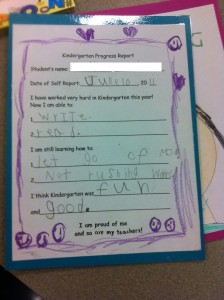 Kindergarten Progress Report
Student's name:
Date of Self Report: 20
I have worked very hard in Kindergarten this year!
Now I am able to:
1. write
2. read.
I am still learning how to:
1. let go of
2. Not rushing
I think Kindergarten was fun
and good.
I am proud of me
and so are my teachers!